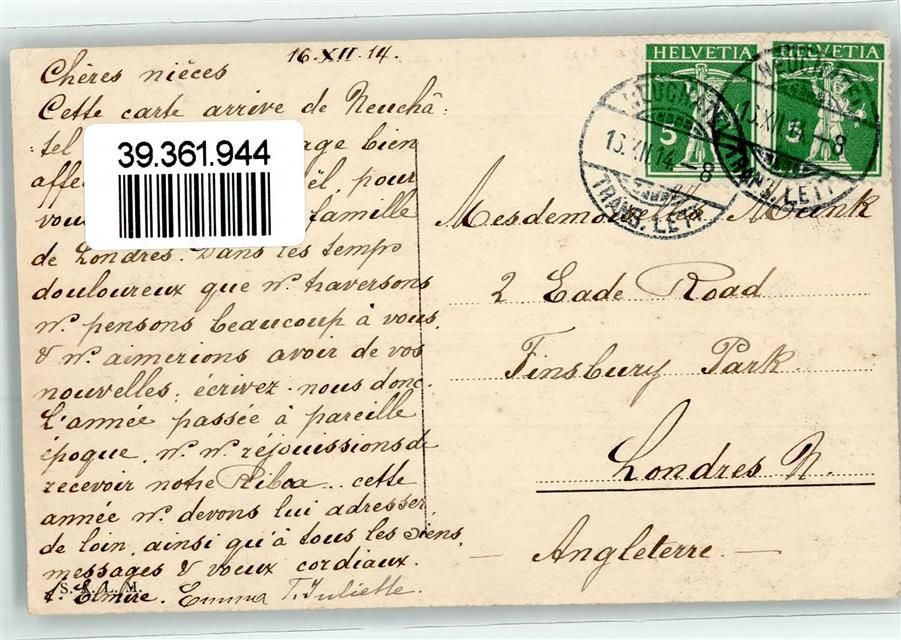 16.XII.14.
Chères nièces
Cette carte arrive de Neuchâ-
tel
age bien
affe
ël, pour
vou
famille
de Londres. Dans les temps
douloureux que n^s. traversons
n^s. pensons beaucoup à vous,
& n^s. aimerions avoir de vos
nouvelles, écrivez-nous donc.
L'année passée à pareille
époque, n^s. n^s. réjouissions de
recevoir notre ... cette
année n^s. devons lui adresser
de loin, ainsi qu'à tous les siens,
messages & vœux cordiaux.
Elmire. Emma T. Juliette.
S. A. L. M.
39.361.944
HELVETIA
HELVETIA
5
NEUCHATEL
16.XII.14.-8
TRANS. LETT.
NEUCHATEL
16.XII.14.-8
TRANS. LETT.
Mesdemoiselles Munk
2 Eade Road
Finsbury Park
Londres N.
— Angleterre —